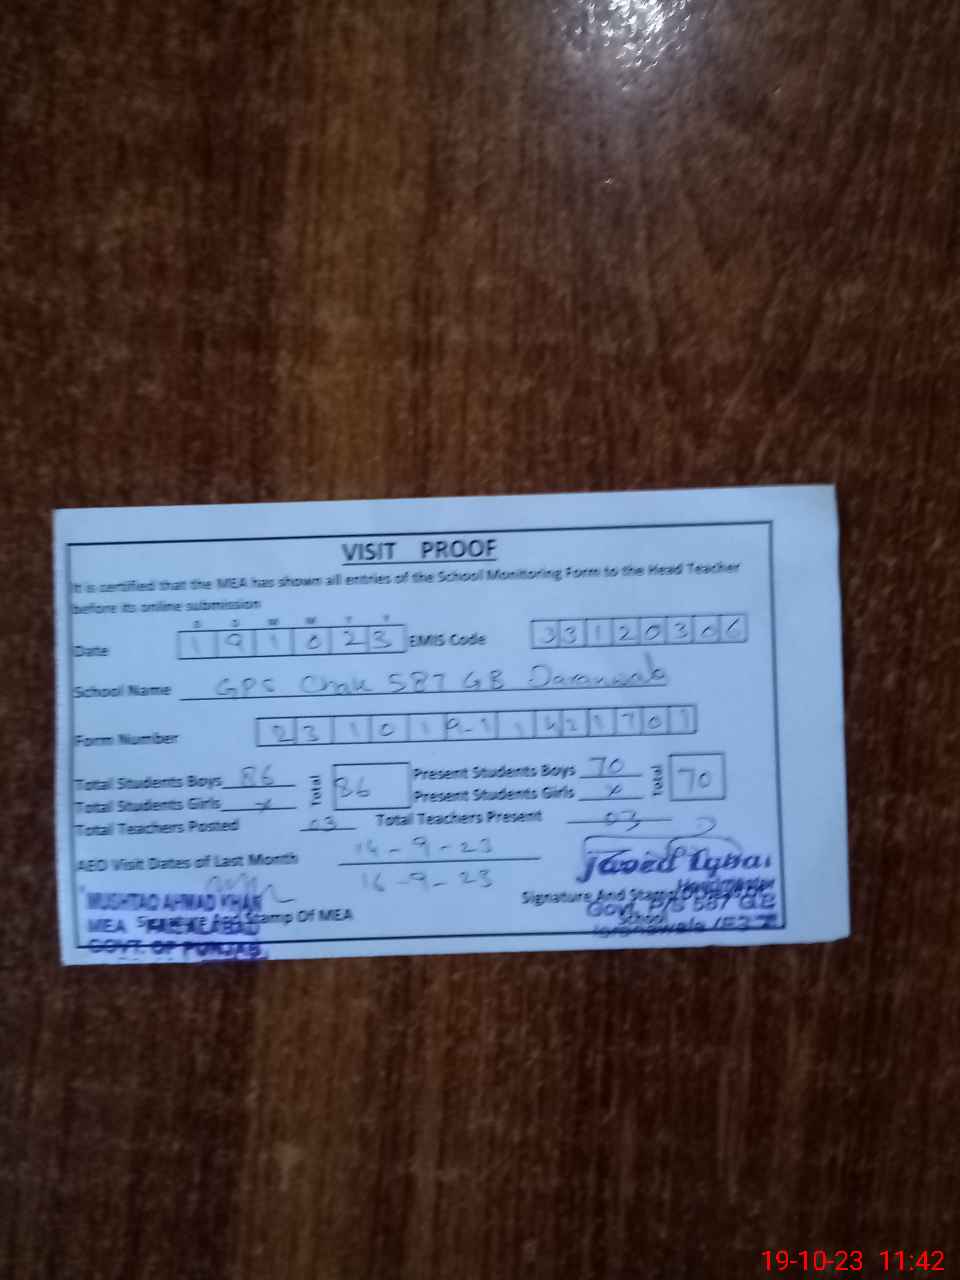 VISIT PROOF
It is certified that the MEA has shown all entries of the School Monitoring Form to the Head Teacher
before its online submission
D D M M Y Y
Date 1 9 1 0 2 3 EMIS Code 3 3 1 2 0 3 0 6
School Name GPS Chak 587 GB
Form Number 2 3 1 0 1 9 1 1 4 2 1 7 0 1
Total Students Boys 86 Total 86 Present Students Boys 70 Total 70
Total Students Girls x Present Students Girls x
Total Teachers Posted 03 Total Teachers Present 03
AEO Visit Dates of Last Month 14-9-23
16-9-23
Javed Iqbal
Headmaster
MUSHTAQ AHMAD KHAN Signature And Stamp
Govt. P/S 587 GB
MEA FAISALABAD Signature And Stamp Of MEA School
GOVT. OF PUNJAB
19-10-23 11:42